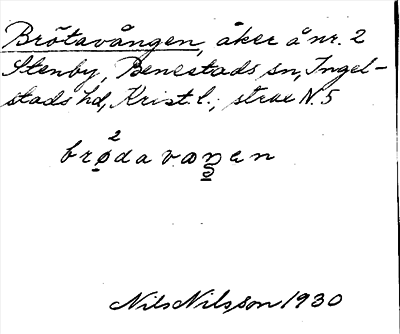 Brötavången, åker å nr. 2
Stenby, Benestads sn, Ingel-
stads hd, Krist. l., strax N. 5
2
brødavaŋen
Nils Nilsson 1930